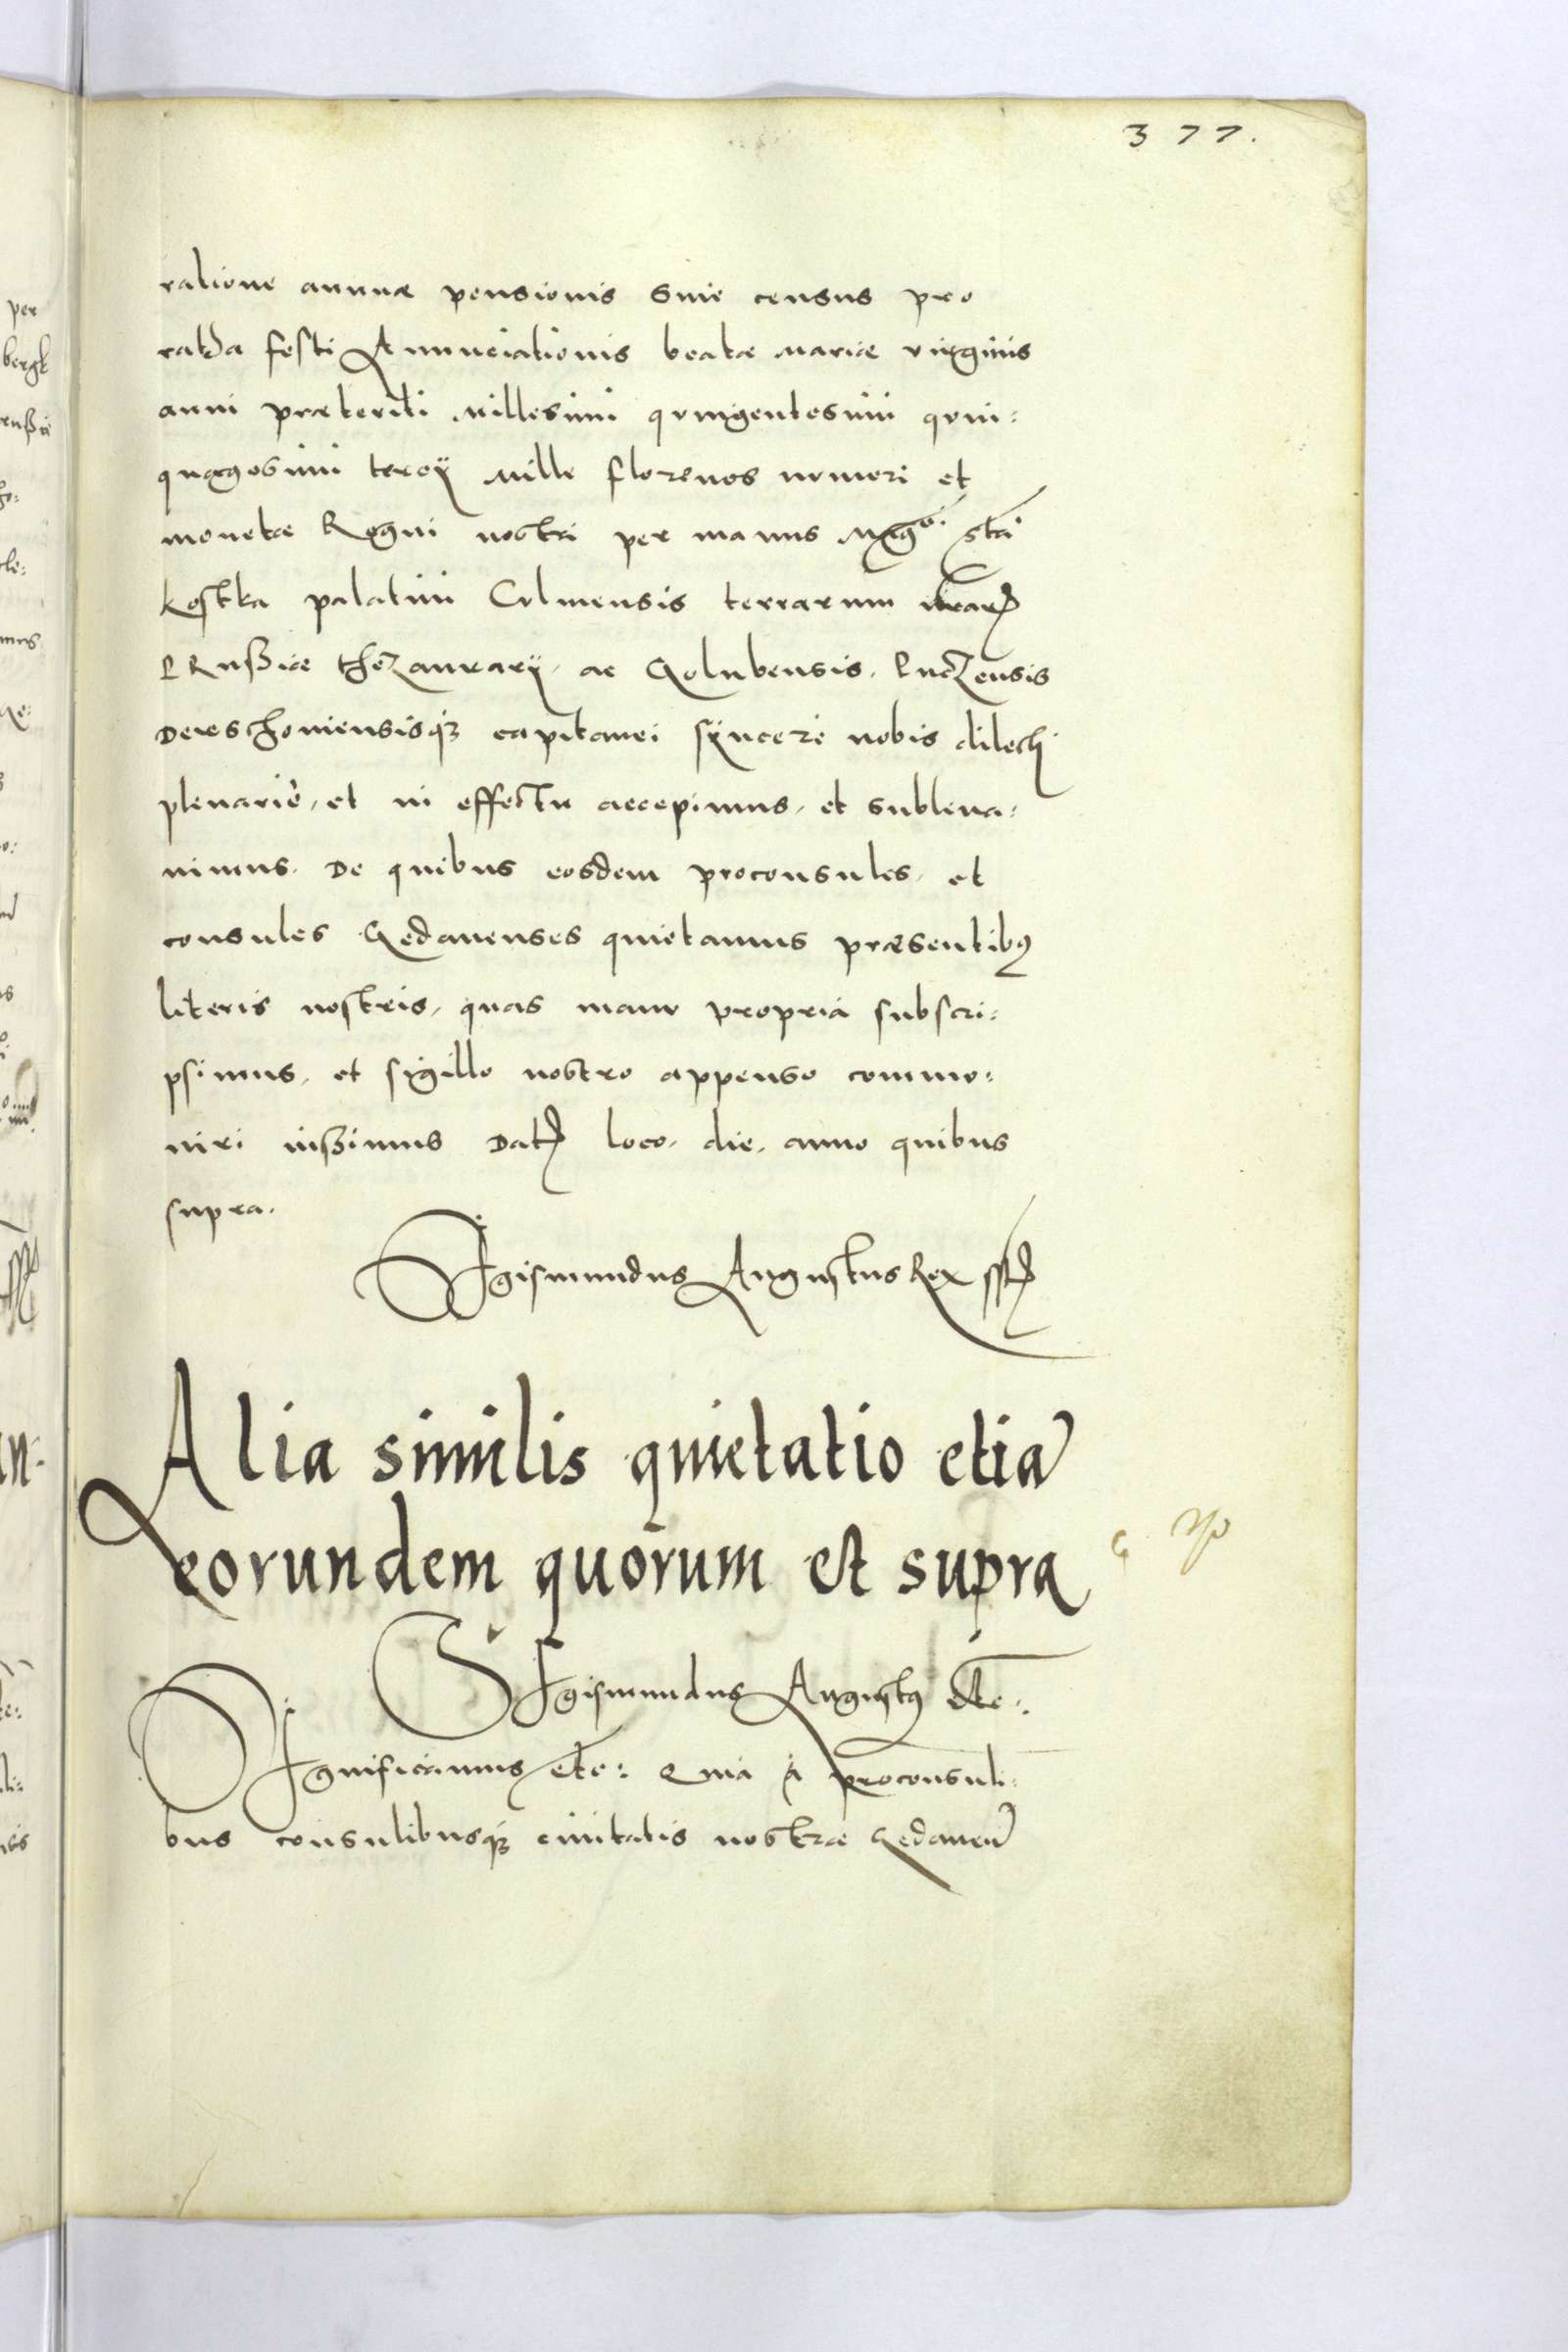 377.
ratione annuæ pensionis siue census pro
ratha festi Annunciationis beatæ Mariæ virginis
anni præteriti Millesimi quingentesimi quin:
quagesimi tercij Mille florenos numeri et
monetæ Regni nostri per manus Mgci. Sta:
Kostka palatini Culmensis terrarum nrar
Prussiæ thezaurarij, ac Golubensis, Puczensis
Derschoniensisq3 capitanei syncere nobis dilecti
plenariè, et in effectu accepimus, et subleua:
uimus. De quibus eosdem proconsules, et
consules Gedanenses quietamus præsentib9
literis nostris, quas manu propria subscri:
psimus, et sigillo nostro appenso commu:
niri iussimus Dat loco, die, anno quibus
supra.
Sigismundus Augustus Rex sst
Alia similis quietatio etia
eorundem quorum et supra
Sigismundus August9 etc:
Significamus etc: Quia à proconsuli:
bus consulibusq3 ciuitatis nostræ Gedanen